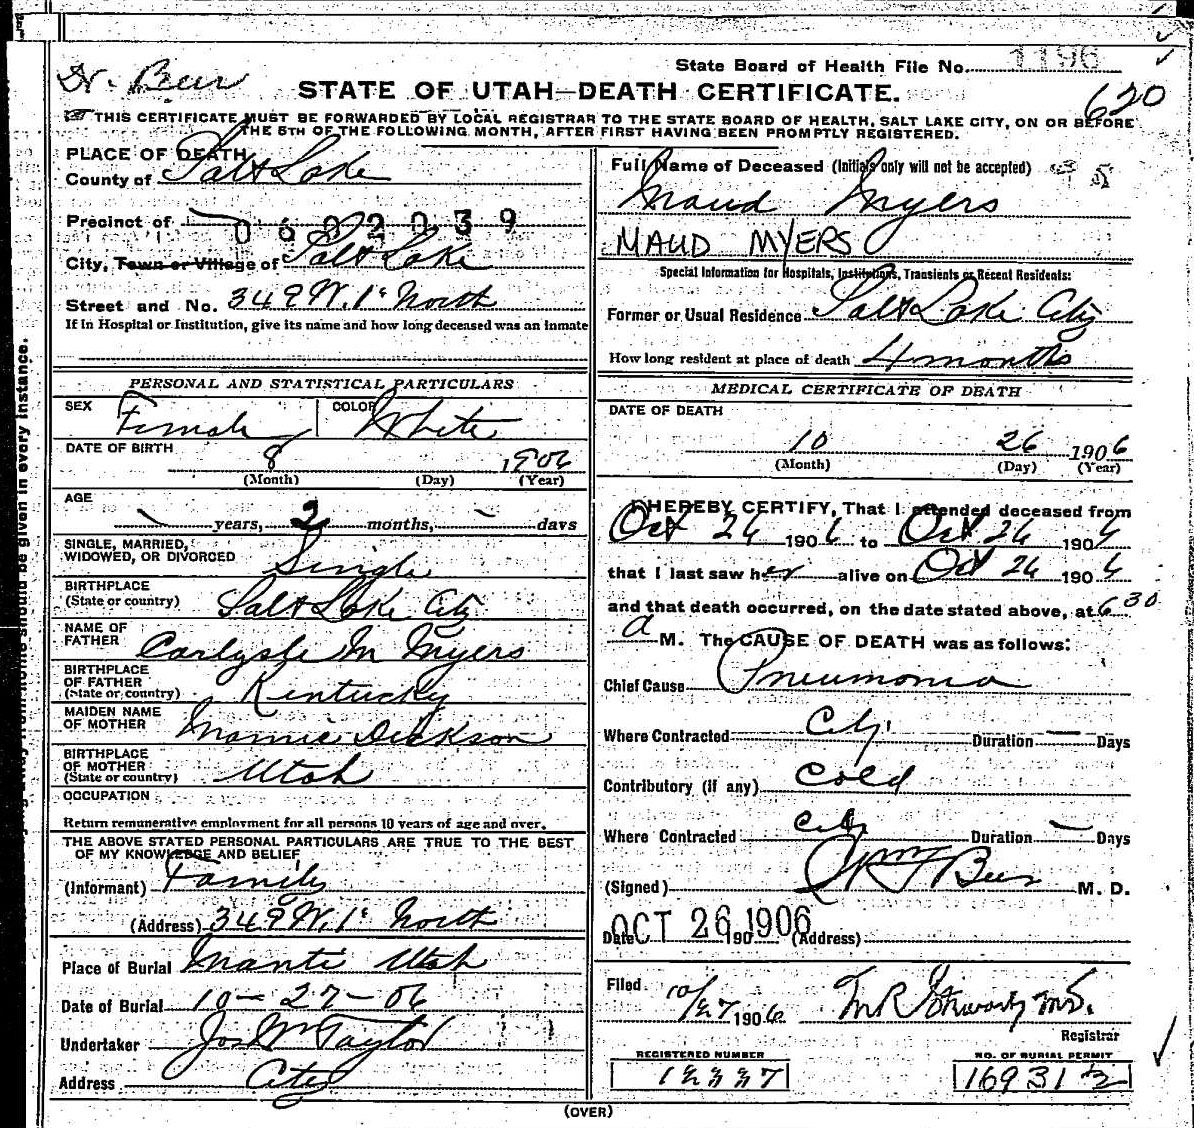 Dr. Beer
State Board of Health File No. 1196
STATE OF UTAH—DEATH CERTIFICATE.
620
THIS CERTIFICATE MUST BE FORWARDED BY LOCAL REGISTRAR TO THE STATE BOARD OF HEALTH, SALT LAKE CITY, ON OR BEFORE
THE 5TH OF THE FOLLOWING MONTH, AFTER FIRST HAVING BEEN PROMPTLY REGISTERED.
PLACE OF DEATH
County of Salt Lake
Precinct of 0602039
City, Town or Village of Salt Lake
Street and No. 349 W. 1st North
If in Hospital or Institution, give its name and how long deceased was an inmate
PERSONAL AND STATISTICAL PARTICULARS
SEX Female COLOR White
DATE OF BIRTH 8 1906
(Month) (Day) (Year)
AGE
— years, 2 months, — days
SINGLE, MARRIED,
WIDOWED, OR DIVORCED Single
BIRTHPLACE
(State or country) Salt Lake City
NAME OF
FATHER Carlysle M Myers
BIRTHPLACE
OF FATHER
(State or country) Kentucky
MAIDEN NAME
OF MOTHER Mamie Dickson
BIRTHPLACE
OF MOTHER
(State or country) Utah
OCCUPATION
Return remunerative employment for all persons 10 years of age and over.
THE ABOVE STATED PERSONAL PARTICULARS ARE TRUE TO THE BEST
OF MY KNOWLEDGE AND BELIEF
(Informant) Family
(Address) 349 W. 1st North
Place of Burial Manti Utah
Date of Burial 10-27-06
Undertaker Jos W Taylor
Address City
Full Name of Deceased (Initials only will not be accepted)
Maud Myers
MAUD MYERS
Special Information for Hospitals, Institutions, Transients or Recent Residents:
Former or Usual Residence Salt Lake City
How long resident at place of death 4 months
MEDICAL CERTIFICATE OF DEATH
DATE OF DEATH
10 26 1906
(Month) (Day) (Year)
I HEREBY CERTIFY, That I attended deceased from
Oct 26 1906 to Oct 26 1906
that I last saw her alive on Oct 26 1906
and that death occurred, on the date stated above, at 6 30
a M. The CAUSE OF DEATH was as follows:
Chief Cause Pneumonia
Where Contracted City. Duration — Days
Contributory (if any) Cold
Where Contracted City Duration — Days
(Signed) Beer M. D.
Date OCT 26 1906 190 (Address)
Filed 10/27 1906 M.D.
Registrar
REGISTERED NUMBER NO. OF BURIAL PERMIT
16931 1/2
(OVER)
should be given in every instance.